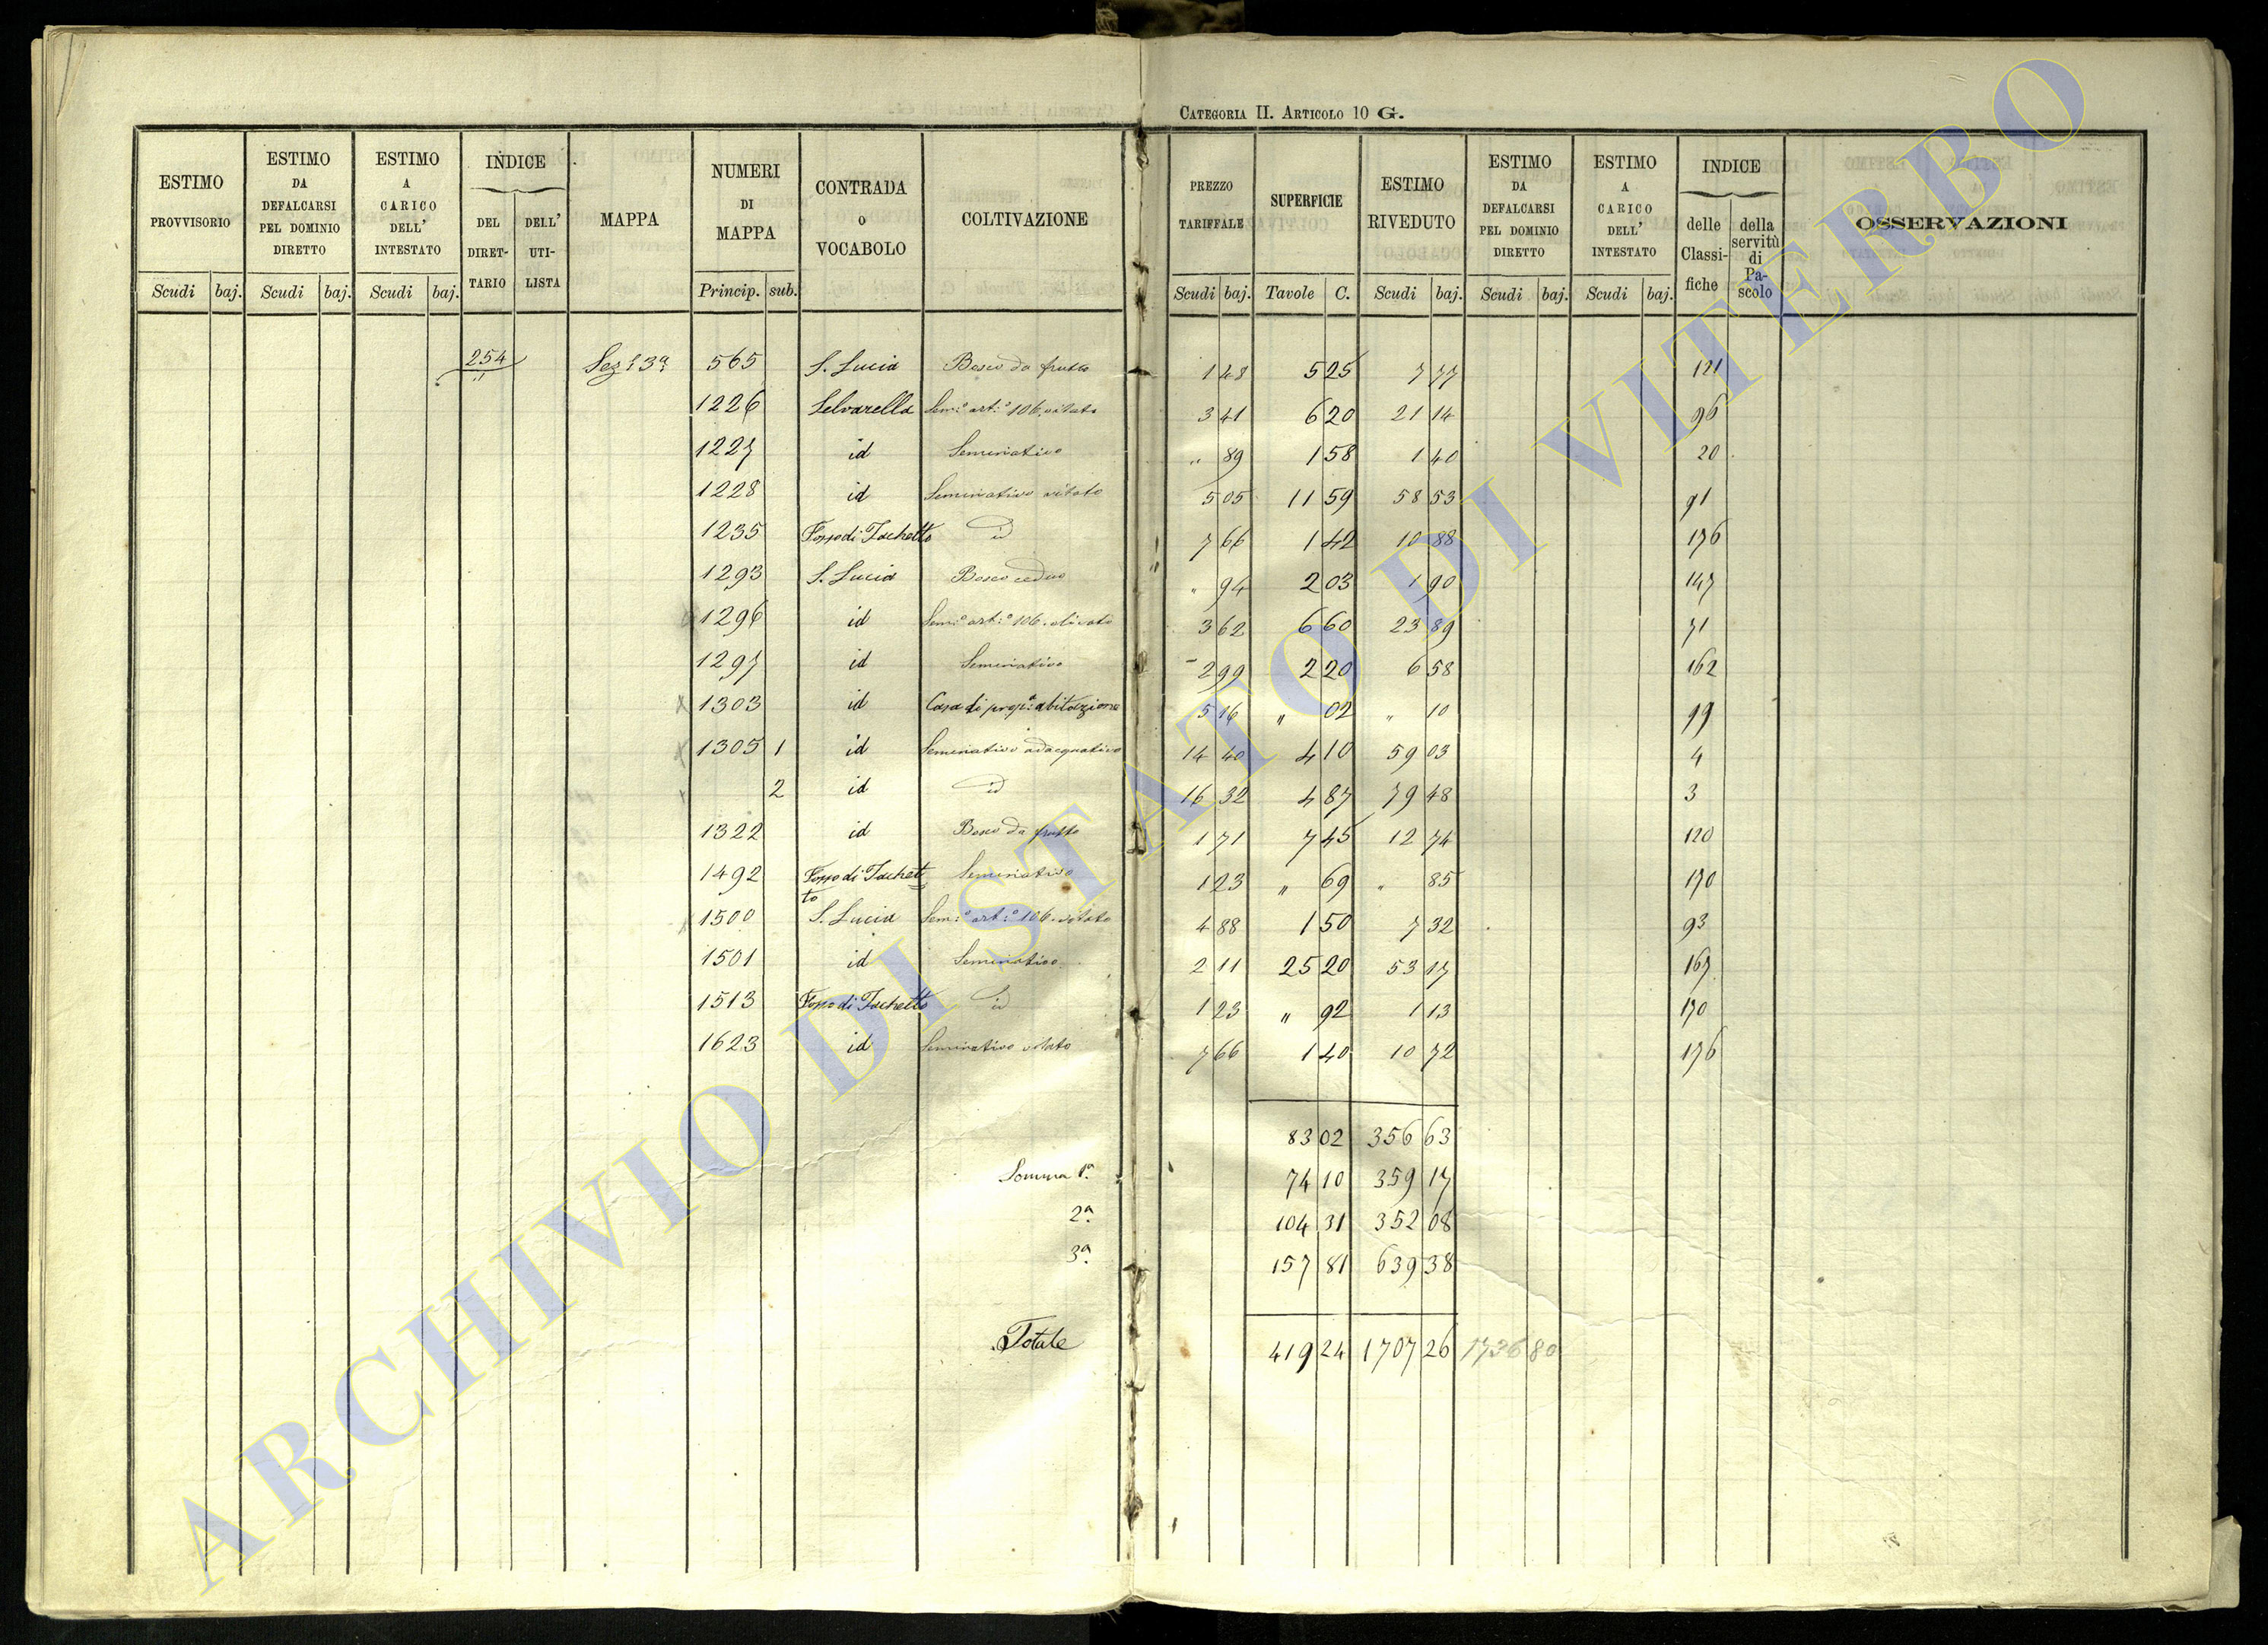 CATEGORIA II. ARTICOLO 10 G.
ESTIMO PROVVISORIO
Scudi baj.
ESTIMO DA DEFALCARSI PEL DOMINIO DIRETTO
Scudi baj.
ESTIMO A CARICO DELL' INTESTATO
Scudi baj.
INDICE
DEL DIRETTARIO
DELL' UTILISTA
MAPPA
NUMERI DI MAPPA
Princip. sub.
CONTRADA o VOCABOLO
COLTIVAZIONE
PREZZO TARIFFALE
Scudi baj.
SUPERFICIE
Tavole C.
ESTIMO RIVEDUTO
Scudi baj.
ESTIMO DA DEFALCARSI PEL DOMINIO DIRETTO
Scudi baj.
ESTIMO A CARICO DELL' INTESTATO
Scudi baj.
INDICE
delle Classifiche
della servitù di Pascolo
OSSERVAZIONI
254 Sez: 3ª 565 S. Lucia Bosco da frutto 1 48 5 25 7 77 121
1226 Selvarella Sem:º art:º 106. vitato 3 41 6 20 21 14 96
1227 id Seminativo " 89 1 58 1 40 20
1228 id Seminativo vitato 5 05 11 59 58 53 91
1235 Fosso di Tachetto id 7 66 1 42 10 88 176
1293 S. Lucia Bosco ceduo " 94 2 03 1 90 147
1296 id Sem:º art:º 106. olivato 3 62 6 60 23 89 71
1297 id Seminativo 2 99 2 20 6 58 162
x 1303 id Casa di prop:ª abitazione 5 16 " 02 " 10 19
x 1305 1 id Seminativo adacquativo 14 40 4 10 59 03 4
x 2 id id 16 32 4 87 79 48 3
1322 id Bosco da frutto 1 71 7 45 12 74 120
1492 Fosso di Tachetto Seminativo 1 23 " 69 " 85 170
x 1500 S. Lucia Sem:º art:º 106. vitato 4 88 1 50 7 32 93
1501 id Seminativo 2 11 25 20 53 17 167
1513 Fosso di Tachetto id 1 23 " 92 1 13 170
1623 id Seminativo vitato 7 66 1 40 10 72 176
83 02 356 63
Somma 1ª. 74 10 359 17
2ª. 104 31 352 08
3ª. 157 81 639 38
Totale 419 24 1707 26 1736 80
ARCHIVIO DI STATO DI VITERBO